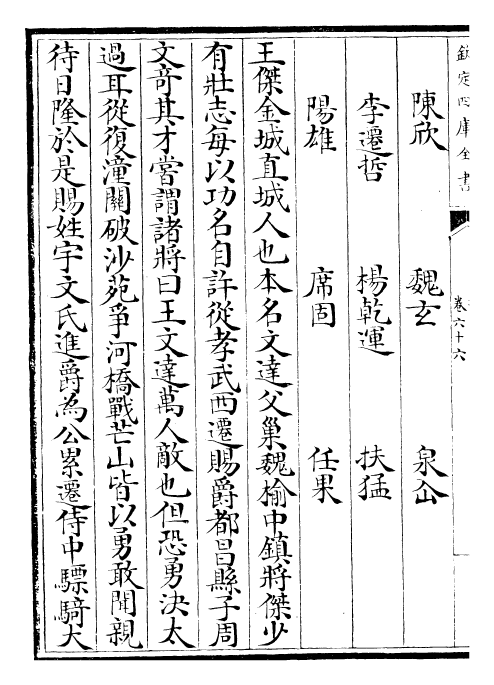 欽定四庫全書
卷六十六
陳欣　魏玄　泉仚
李遷哲　楊乾運　扶猛
陽雄　席固　任果
王傑金城直城人也本名文達父巢魏榆中鎮將傑少
有壯志每以功名自許從孝武西遷賜爵都昌縣子周
文奇其才嘗謂諸將曰王文達萬人敵也但恐勇決太
過耳從復潼關破沙苑爭河橋戰芒山皆以勇敢聞親
待日隆於是賜姓宇文氏進爵為公累遷侍中驃騎大